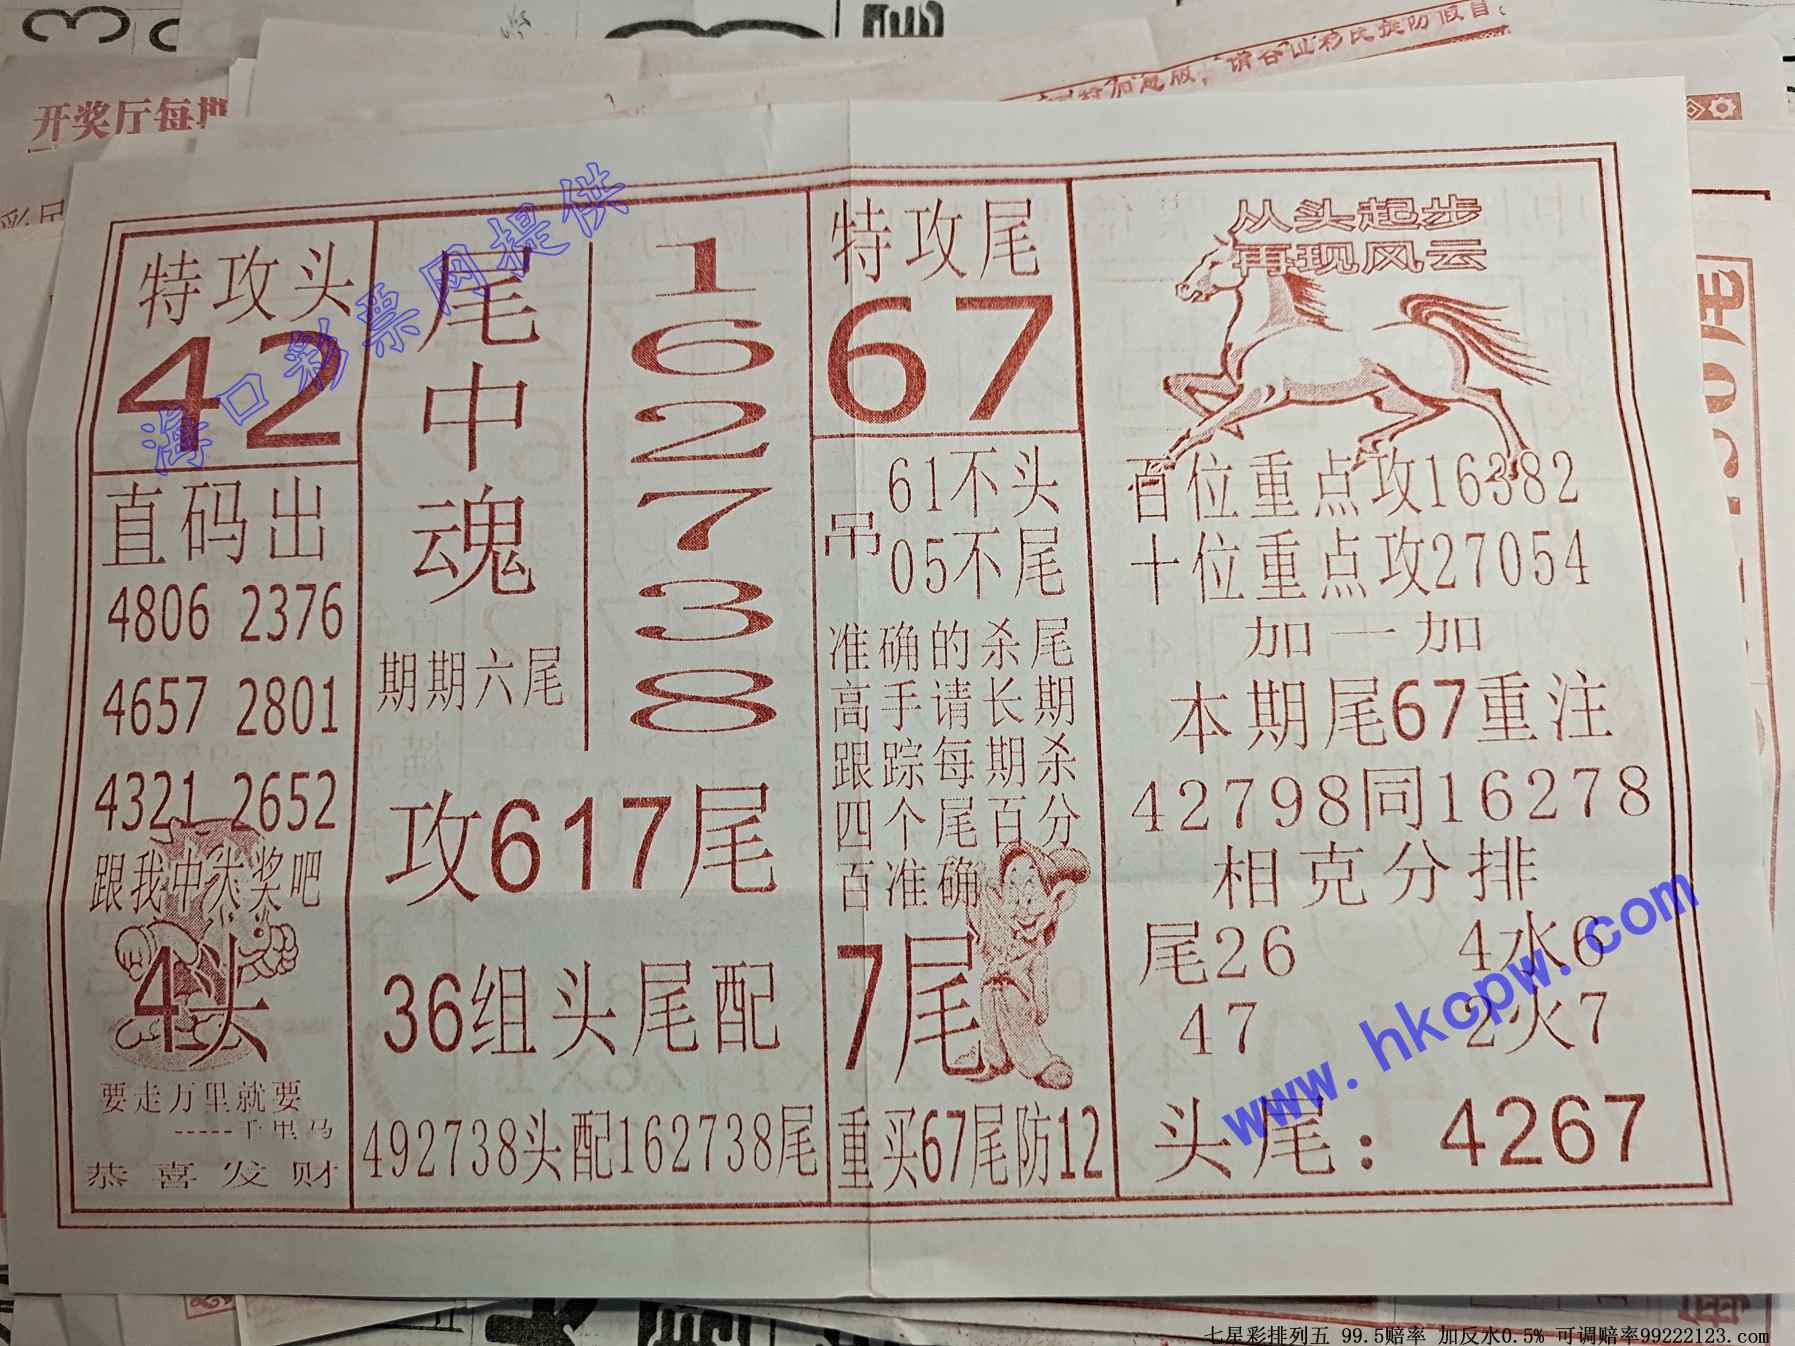 开奖厅每期
请各位彩民提防假冒
特攻头
42
直码出
4806 2376
4657 2801
4321 2652
跟我中大奖吧
4头
要走万里就要
-----千里马
恭喜发财
尾中魂
期期六尾
1
6
2
7
3
8
攻617尾
36组头尾配
492738头配162738尾
特攻尾
67
吊
61不头
05不尾
准确的杀尾
高手请长期
跟踪每期杀
四个尾百分
百准确
7尾
重买67尾防12
从头起步
再现风云
百位重点攻16382
十位重点攻27054
加一加
本期尾67重注
42798同16278
相克分排
尾26 4水6
47 2火7
头尾：4267
海口彩票网提供
www.hkcpw.com
七星彩排列五 99.5赔率 加反水0.5% 可调赔率99222123.com